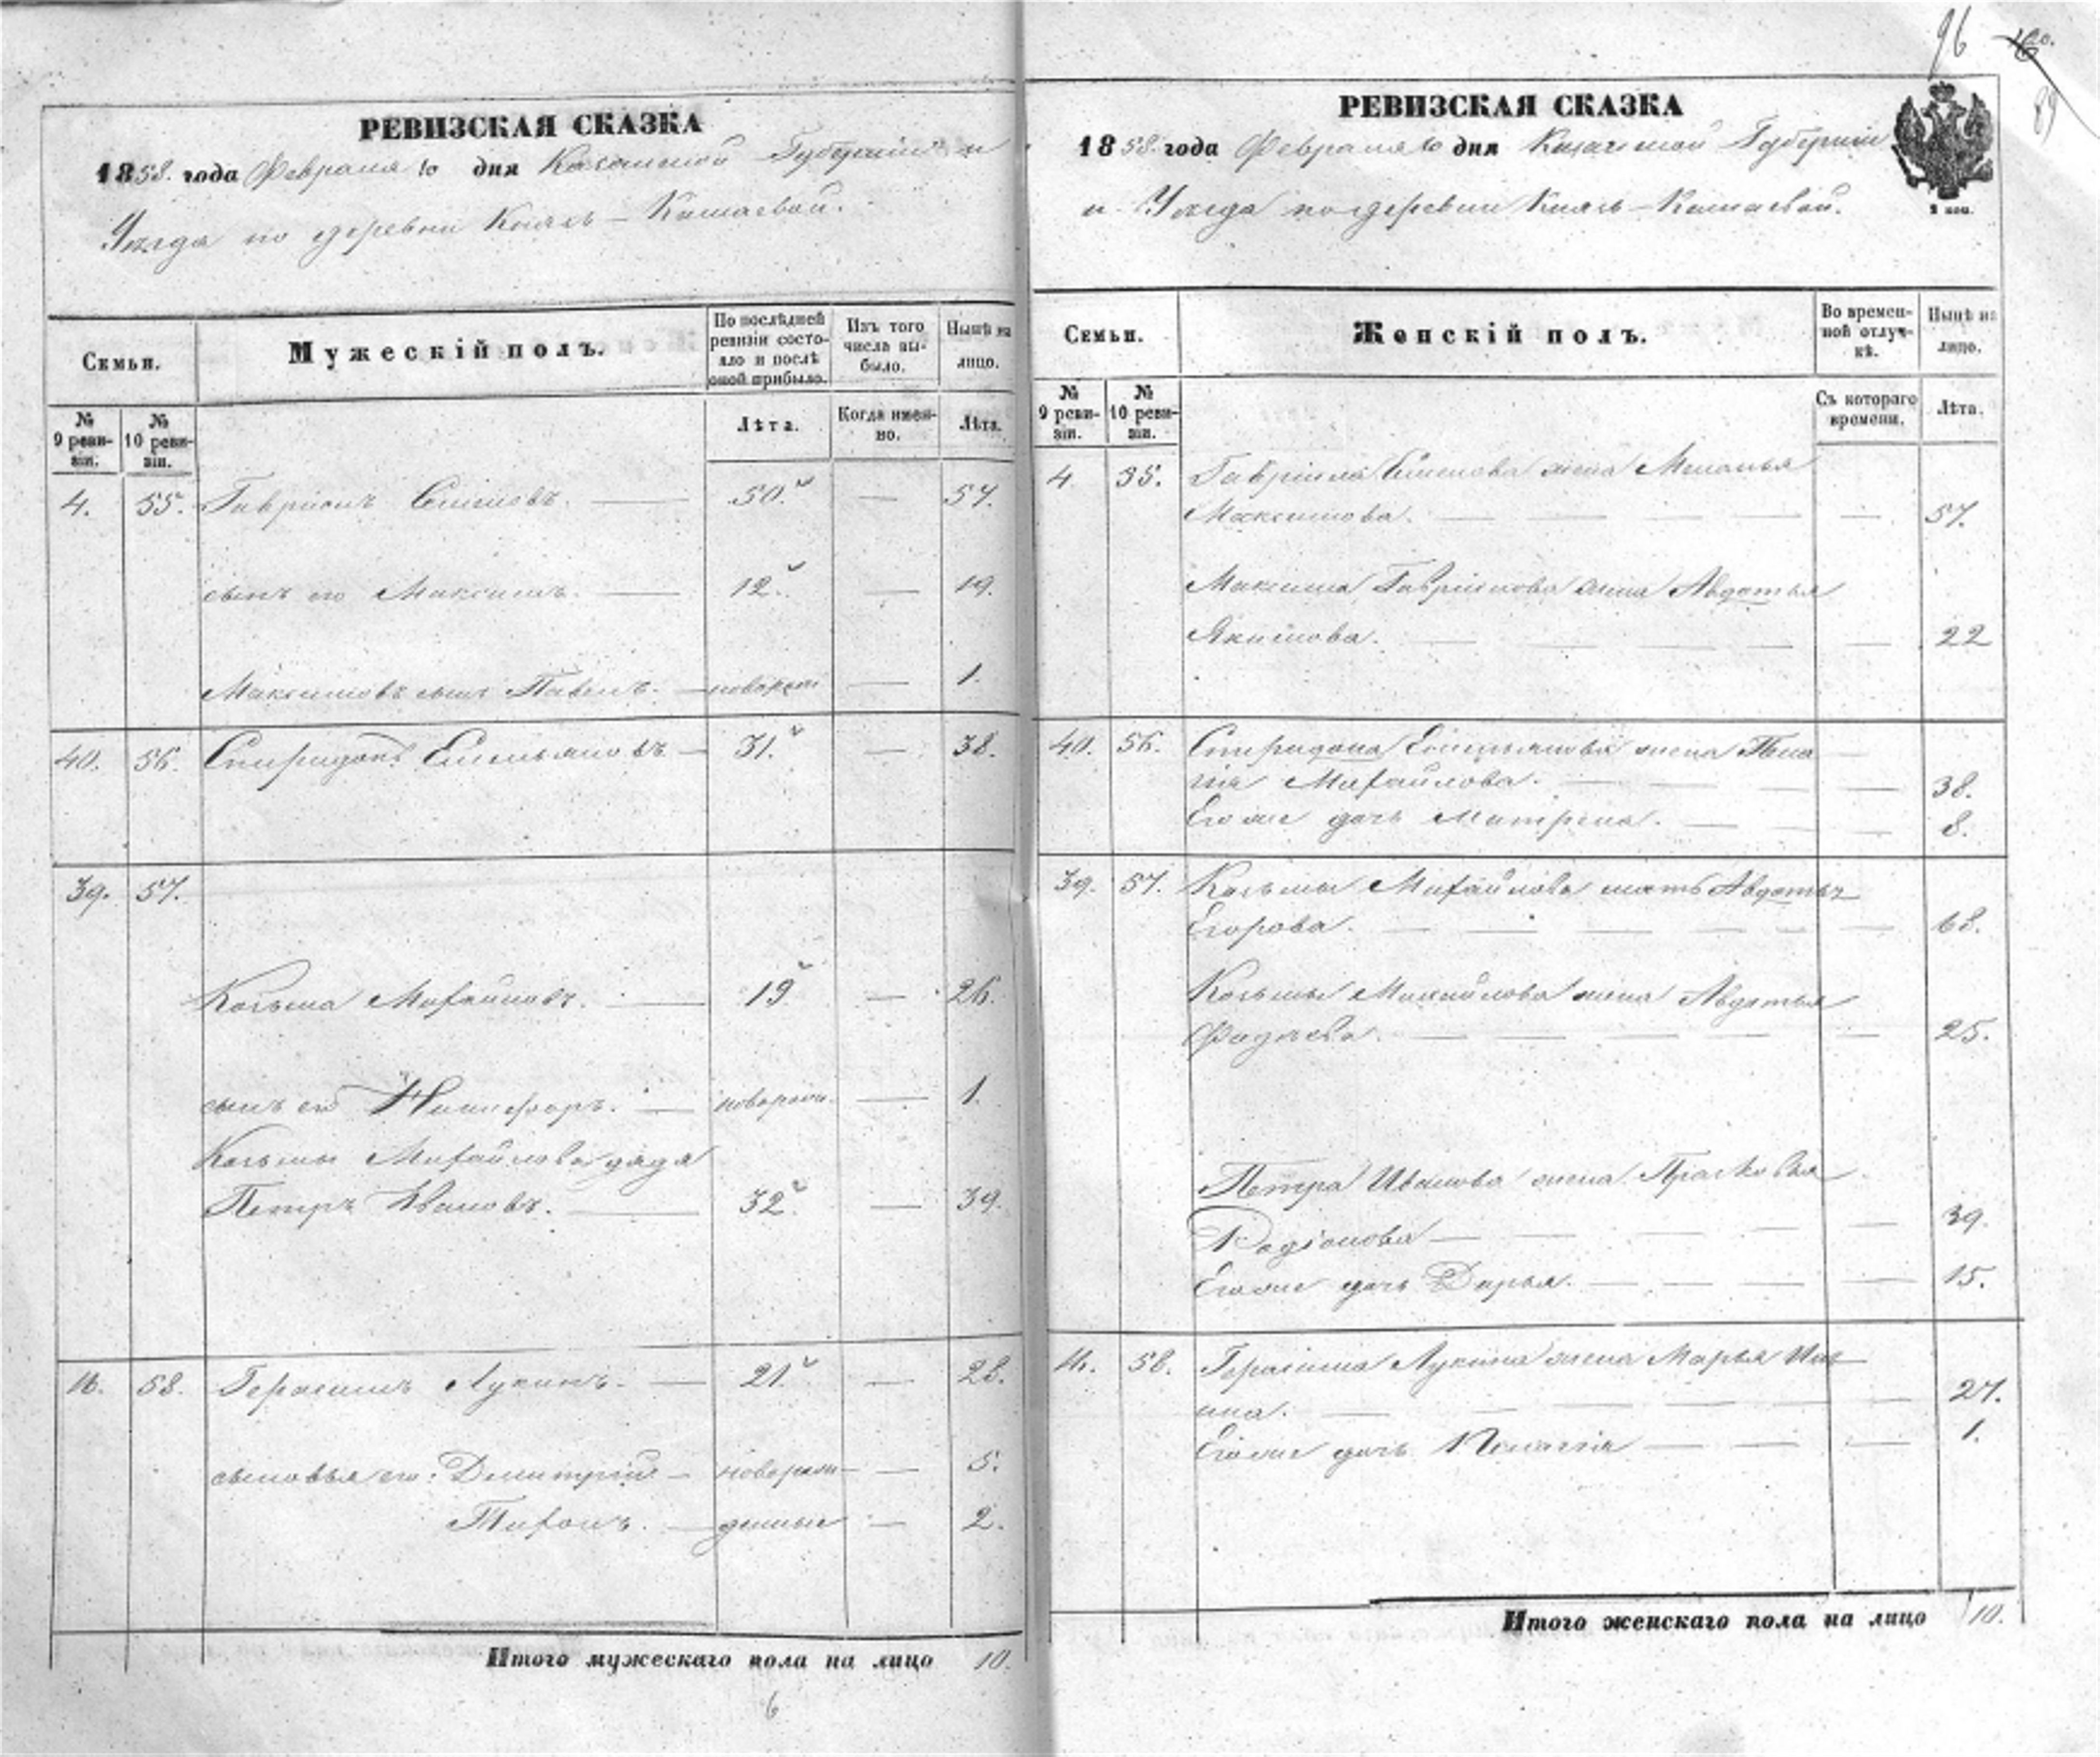 РЕВИЗСКАЯ СКАЗКА
1858. года Февраля 10 дня Казанской Губернiи и
Уѣзда по деревни Князь-Камаевой.
Семьи.
Мужескiй полъ.
По послѣдней ревизiи состояло и послѣ оной прибыло.
Изъ того числа выбыло.
Нынѣ на лицо.
№ 9 ревизiи.
№ 10 ревизiи.
Лѣта.
Когда именно.
Лѣта.
4. 55. Гаврiилъ Семеновъ. — 50. — 57.
сынъ его Максимъ. — 12. — 19.
Максимовъ сынъ Павелъ. — новорож — 1.
40. 56. Спиридонъ Емельяновъ — 31. — 38.
39. 57.
Козьма Михайловъ. — 19 — 26.
сынъ его Никифоръ. — новорож. — 1.
Козьмы Михайлова дядя
Петръ Ивановъ. — 32. — 39.
16. 58. Герасимъ Лукинъ. — 21. — 28.
сыновья его: Дмитрiй — новорож — 5.
Тихонъ. — денные — 2.
Итого мужескаго пола на лицо 10.
6
96
89
РЕВИЗСКАЯ СКАЗКА
1858. года Февраля 10 дня Казанской Губернiи
и Уѣзда по деревни Князь-Камаевой.
Семьи.
Женскiй полъ.
Во временной отлучкѣ.
Нынѣ на лицо.
№ 9 ревизiи.
№ 10 ревизiи.
Съ котораго времени.
Лѣта.
4 55. Гаврiила Семенова жена Меланья
Максимова. — 57.
Максима Гаврилова жена Авдотья
Якимова. — 22
40. 56. Спиридона Емельянова жена Пела
гiя Михайлова. — 38.
Его же дочь Матрена. — 8.
39. 57. Козьмы Михайлова мать Авдотья
Егорова. — 68.
Козьмы Михайлова жена Авдотья
Фадѣева. — 25.
Петра Иванова жена Прасковья
Родiонова — 39.
Его же дочь Дарья. — 15.
16. 58. Герасима Лукина жена Марья Иль
ина. — 27.
Его же дочь Пелагiя — 1.
Итого женскаго пола на лицо 10.